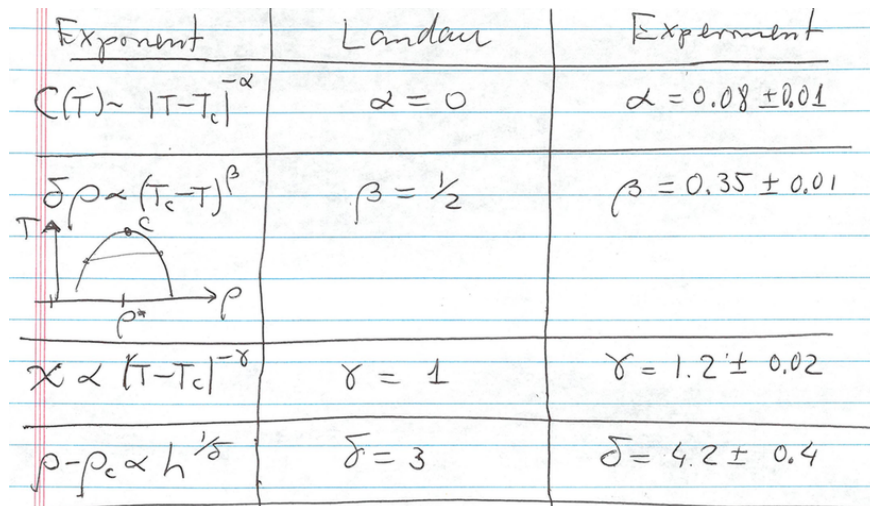 Exponent Landau Experiment
C(T)~ |T-Tc|^-α α = 0 α = 0.08 ±0.01
δρ ∝ (Tc-T)^β β = 1/2 β = 0.35 ± 0.01
T C
ρ
ρ*
χ ∝ |T-Tc|^-γ γ = 1 γ = 1.2 ± 0.02
ρ-ρc ∝ h^1/δ δ = 3 δ = 4.2 ± 0.4